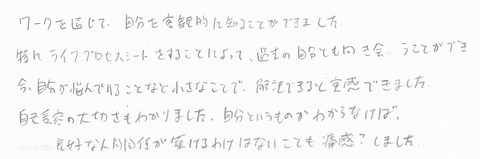 ワークを通じて、自分を客観的に知ることができました。
特にライフプロセスシートをすることによって、過去の自分とも向き会うことができ
今、自分が悩んでいることなど小さなことで、解決できると実感できました。
自己受容の大切さもわかりました。自分というものがわからなければ、
良好な人間関係が築けるわけはないことも痛感？しました。